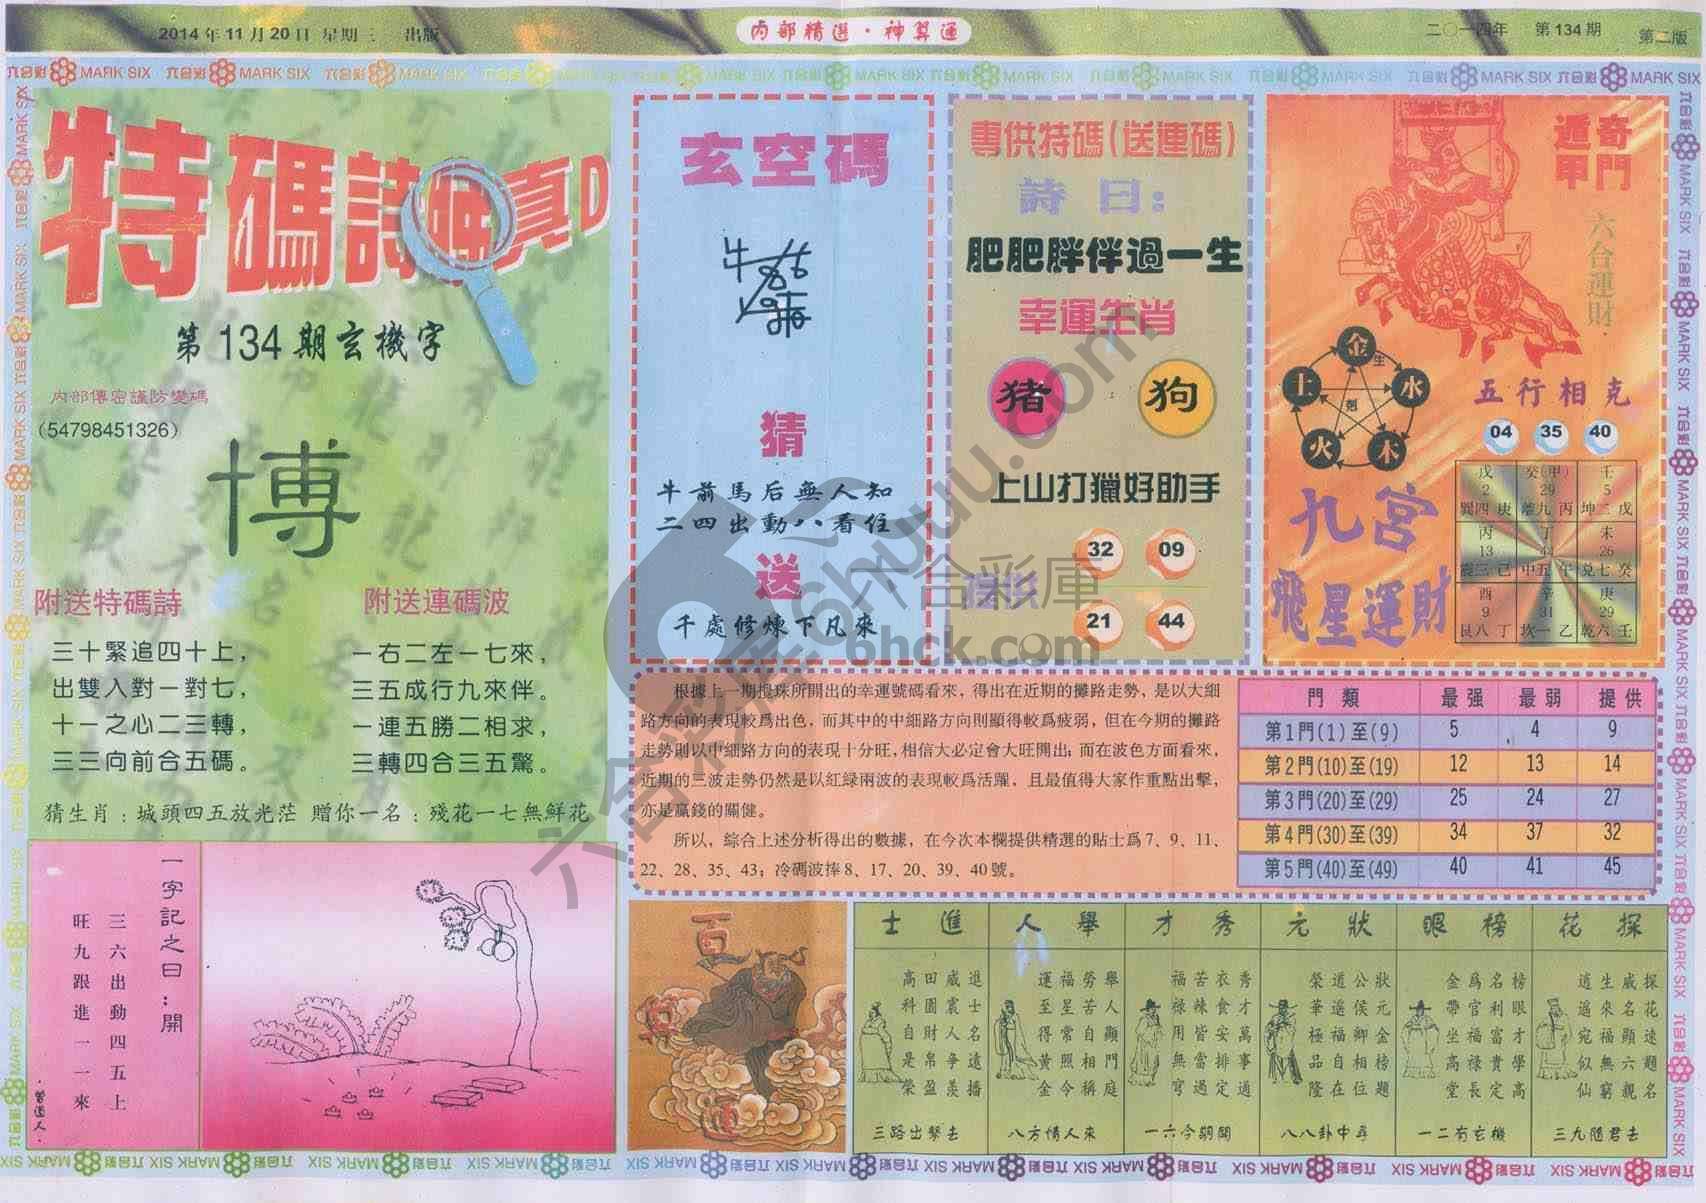 2014年11月20日 星期三 出版
内部精選·神算通
二〇一四年 第134期 第二版
六合彩 MARK SIX
特碼詩
真D
第134期玄機字
内部傳密謹防變碼
(54798451326)
博
附送特碼詩
三十緊追四十上，
出雙入對一對七，
十一之心二三轉，
三三向前合五碼。
附送連碼波
一右二左一七來，
三五成行九來伴。
一連五勝二相求，
三轉四合三五驚。
猜生肖：城頭四五放光茫 贈你一名：殘花一七無鮮花
一字記之曰：開
三六出動四五上
旺九跟進一一來
·曾道人·
玄空碼
猜
牛前馬后無人知
二四出動八八看住
送
千處修煉下凡來
專供特碼(送連碼)
詩曰：
肥肥胖伴過一生
幸運生肖
猪 狗
上山打獵好助手
提供
32 09
21 44
奇門遁甲
六合運財
金
生
水
木
火
土
剋
五行相克
04 35 40
九宮
飛星運財
戊 癸(甲) 壬
2 29 5
巽四庚 離九丙 坤二戊
丙 丁 未
13 44 26
震三己 中五午 兌七癸
酉 辛 庚
9 31 29
艮八丁 坎一乙 乾六壬
根據上一期攪珠所開出的幸運號碼看來，得出在近期的攤路走勢，是以大細
路方向的表現較爲出色，而其中的中細路方向則顯得較爲疲弱，但在今期的攤路
走勢則以中細路方向的表現十分旺，相信大必定會大旺開出；而在波色方面看來，
近期的三波走勢仍然是以紅緑兩波的表現較爲活躍，且最值得大家作重點出擊，
亦是贏錢的關健。
所以，綜合上述分析得出的數據，在今次本欄提供精選的貼士爲7、9、11、
22、28、35、43；冷碼波捧8、17、20、39、40號。
門類 最强 最弱 提供
第1門(1)至(9) 5 4 9
第2門(10)至(19) 12 13 14
第3門(20)至(29) 25 24 27
第4門(30)至(39) 34 37 32
第5門(40)至(49) 40 41 45
探花
探花速題名
威名顯六親
生來福無窮
逍遥宛似仙
三九隨君去
榜眼
榜眼才學高
名利富貴定
爲官福禄長
金帶坐高堂
一二有玄機
狀元
狀元金榜題
公侯卿相位
道遥福自在
榮華極品隆
八八卦中尋
秀才
秀才萬事通
衣食安排定
苦辣皆當過
福禄用無窮
一六今期開
舉人
舉人顯門庭
勞苦自相稱
福星常照今
運至得黄金
八方情人來
進士
進士名遠播
威震人争羡
田園財帛盈
高科自是榮
三路出擊去
六合彩庫
6huuu.com
6hck.com